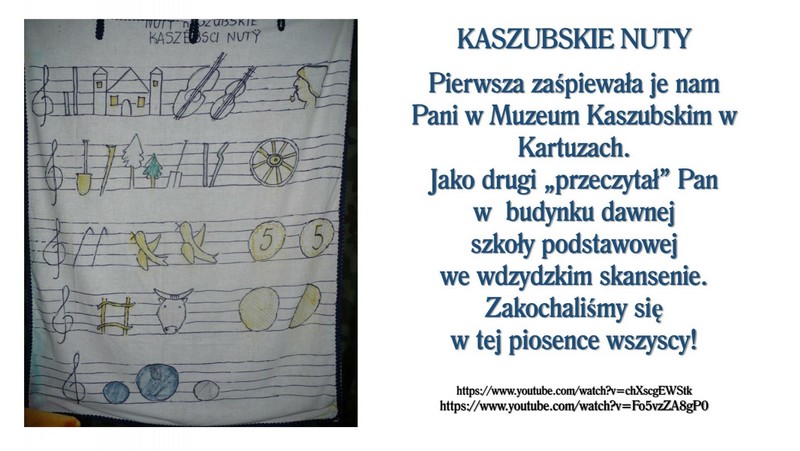 NUTY KASZUBSKIE
KASZEBSCI NUTY
5
5
KASZUBSKIE NUTY
Pierwsza zaśpiewała je nam
Pani w Muzeum Kaszubskim w
Kartuzach.
Jako drugi „przeczytał” Pan
w budynku dawnej
szkoły podstawowej
we wdzydzkim skansenie.
Zakochaliśmy się
w tej piosence wszyscy!
https://www.youtube.com/watch?v=chXscgEWStk
https://www.youtube.com/watch?v=Fo5vzZA8gP0